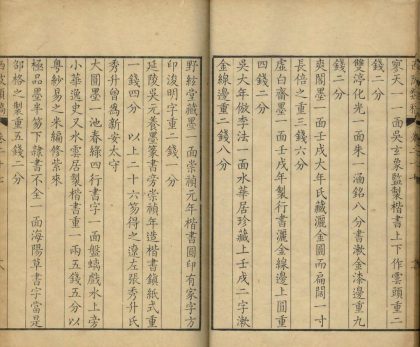 寥天一一面吳去象監製楷書上下作雲頭重二
錢二分
雙淳化光一面朱一涵銘八分書漱金漆邊重九
錢二分
爽閣墨一面壬戌大年氏藏灑金圓而扁闊一寸
長倍之重三錢六分
虛白齋墨一面壬戌年製行書灑金線邊上圓重
四錢二分
吳大年倣李法一面水華居珍藏上壬戌二字漱
金線邊重二錢八分
野絃堂藏墨一面崇禎元年楷書圓印有家字方
印浚明字重二錢一分
延陵吳元養墨篆書旁崇禎年造楷書鎮紙式重
一錢四分以上二十六笏得之遼左張秀升氏
秀升曾爲新安太守
大圓墨一池春綠四行書字一面盤螭戲水上旁
小華逸史又水雲居製楷書重一兩五錢五分以
粵紗易之米編修紫來
極品墨半笏下隸書不全一面海陽草書字當是
邵格之製重五錢一分